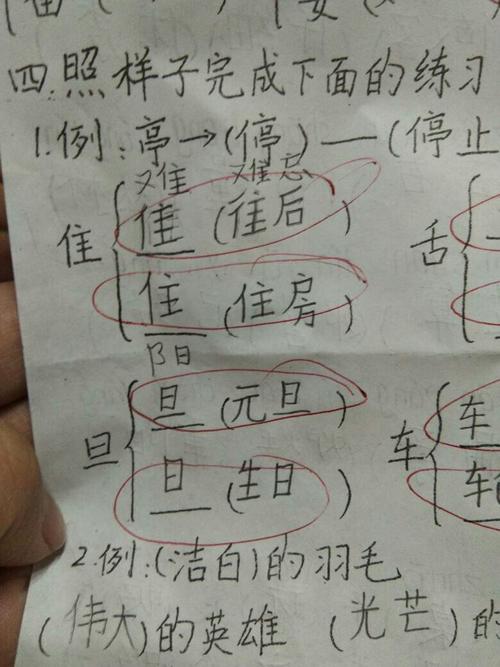 四.照样子完成下面的练习
1.例:亭→(停)—(停止
难 难忘
住 往 (往后) 舌
住 (住房)
阳
旦 旦 (元旦) 车 车
日 (生日) 车
2.例:(洁白)的羽毛
(伟大)的英雄 (光芒)的